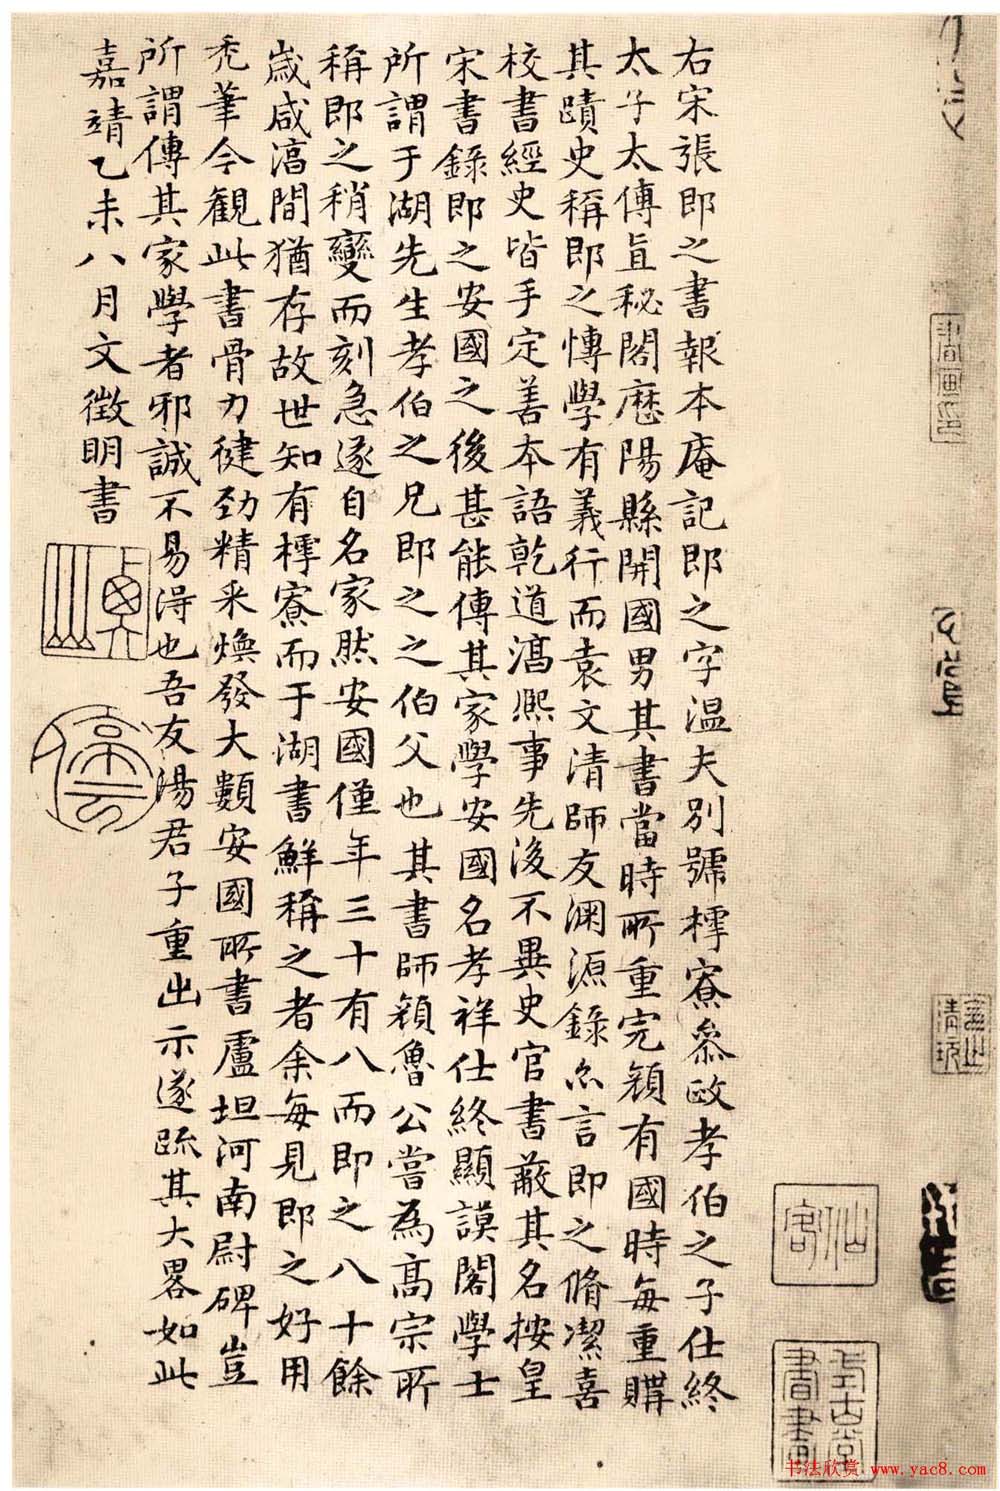 右宋張即之書報本庵記即之字温夫別號樗寮叅政孝伯之子仕終
太子太傅直秘閣歴陽縣開國男其書當時所重完顔有國時每重購
其蹟史稱即之博學有義行而袁文清師友淵源錄亦言即之脩潔喜
校書經史皆手定善本語乾道淳熙事先後不異史官書蔽其名按皇
宋書錄即之安國之後甚能傳其家學安國名孝祥仕終顯謨閣學士
所謂于湖先生孝伯之兄即之之伯父也其書師顔魯公嘗為髙宗所
稱即之稍變而刻急遂自名家然安國僅年三十有八而即之八十餘
歲咸淳間猶存故世知有樗寮而于湖書鮮稱之者余每見即之好用
禿筆今觀此書骨力健勁精采煥發大類安國所書盧坦河南尉碑豈
所謂傳其家學者邪誠不易得也吾友湯君子重出示遂疏其大畧如此
嘉靖乙未八月文徵明書
仙客
書畫
书法欣赏 www.yac8.com